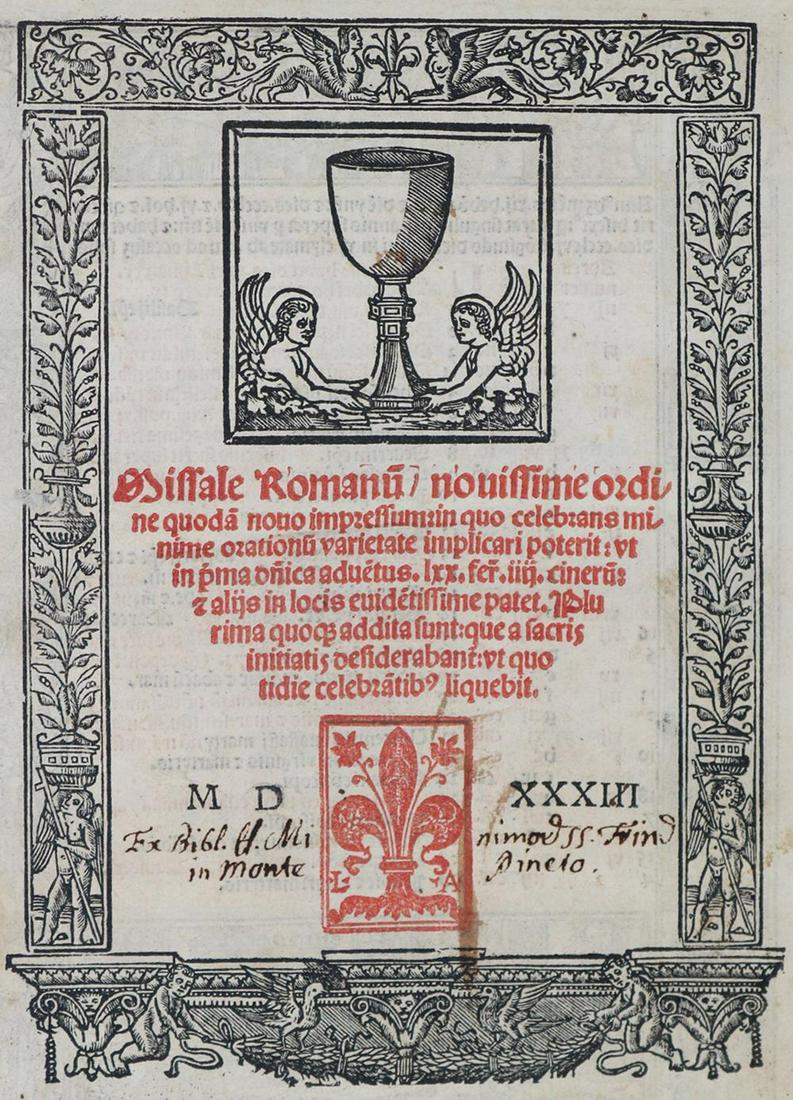 Missale Romanū novissime ordi
ne quodā novo impressum: in quo celebrans mi
nime orationū varietate implicari poterit: vt
in p̄ma dn̄ica aduētus. lxx. fer̄. iiij. cinerū:
⁊ alijs in locis euidētissime patet. Plu
rima quoqꝫ addita sunt: que a sacris
initiatis desiderabant̄: vt quo
tidie celebrātibꝰ liquebit.
M D XXXIII
L A
Ex Bibl. ff. Mi nimoꝝ SS. Trind
in Monte Pincio.